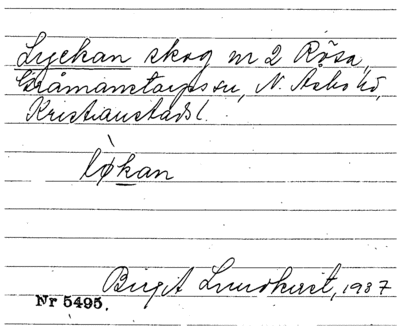 Lyckan skog nr 2 Rösa,
Gråmanstorps sn, N. Åsbo hd,
Kristianstads l.
løkan
Birgit Lundkvist, 1937
Nr 5495.